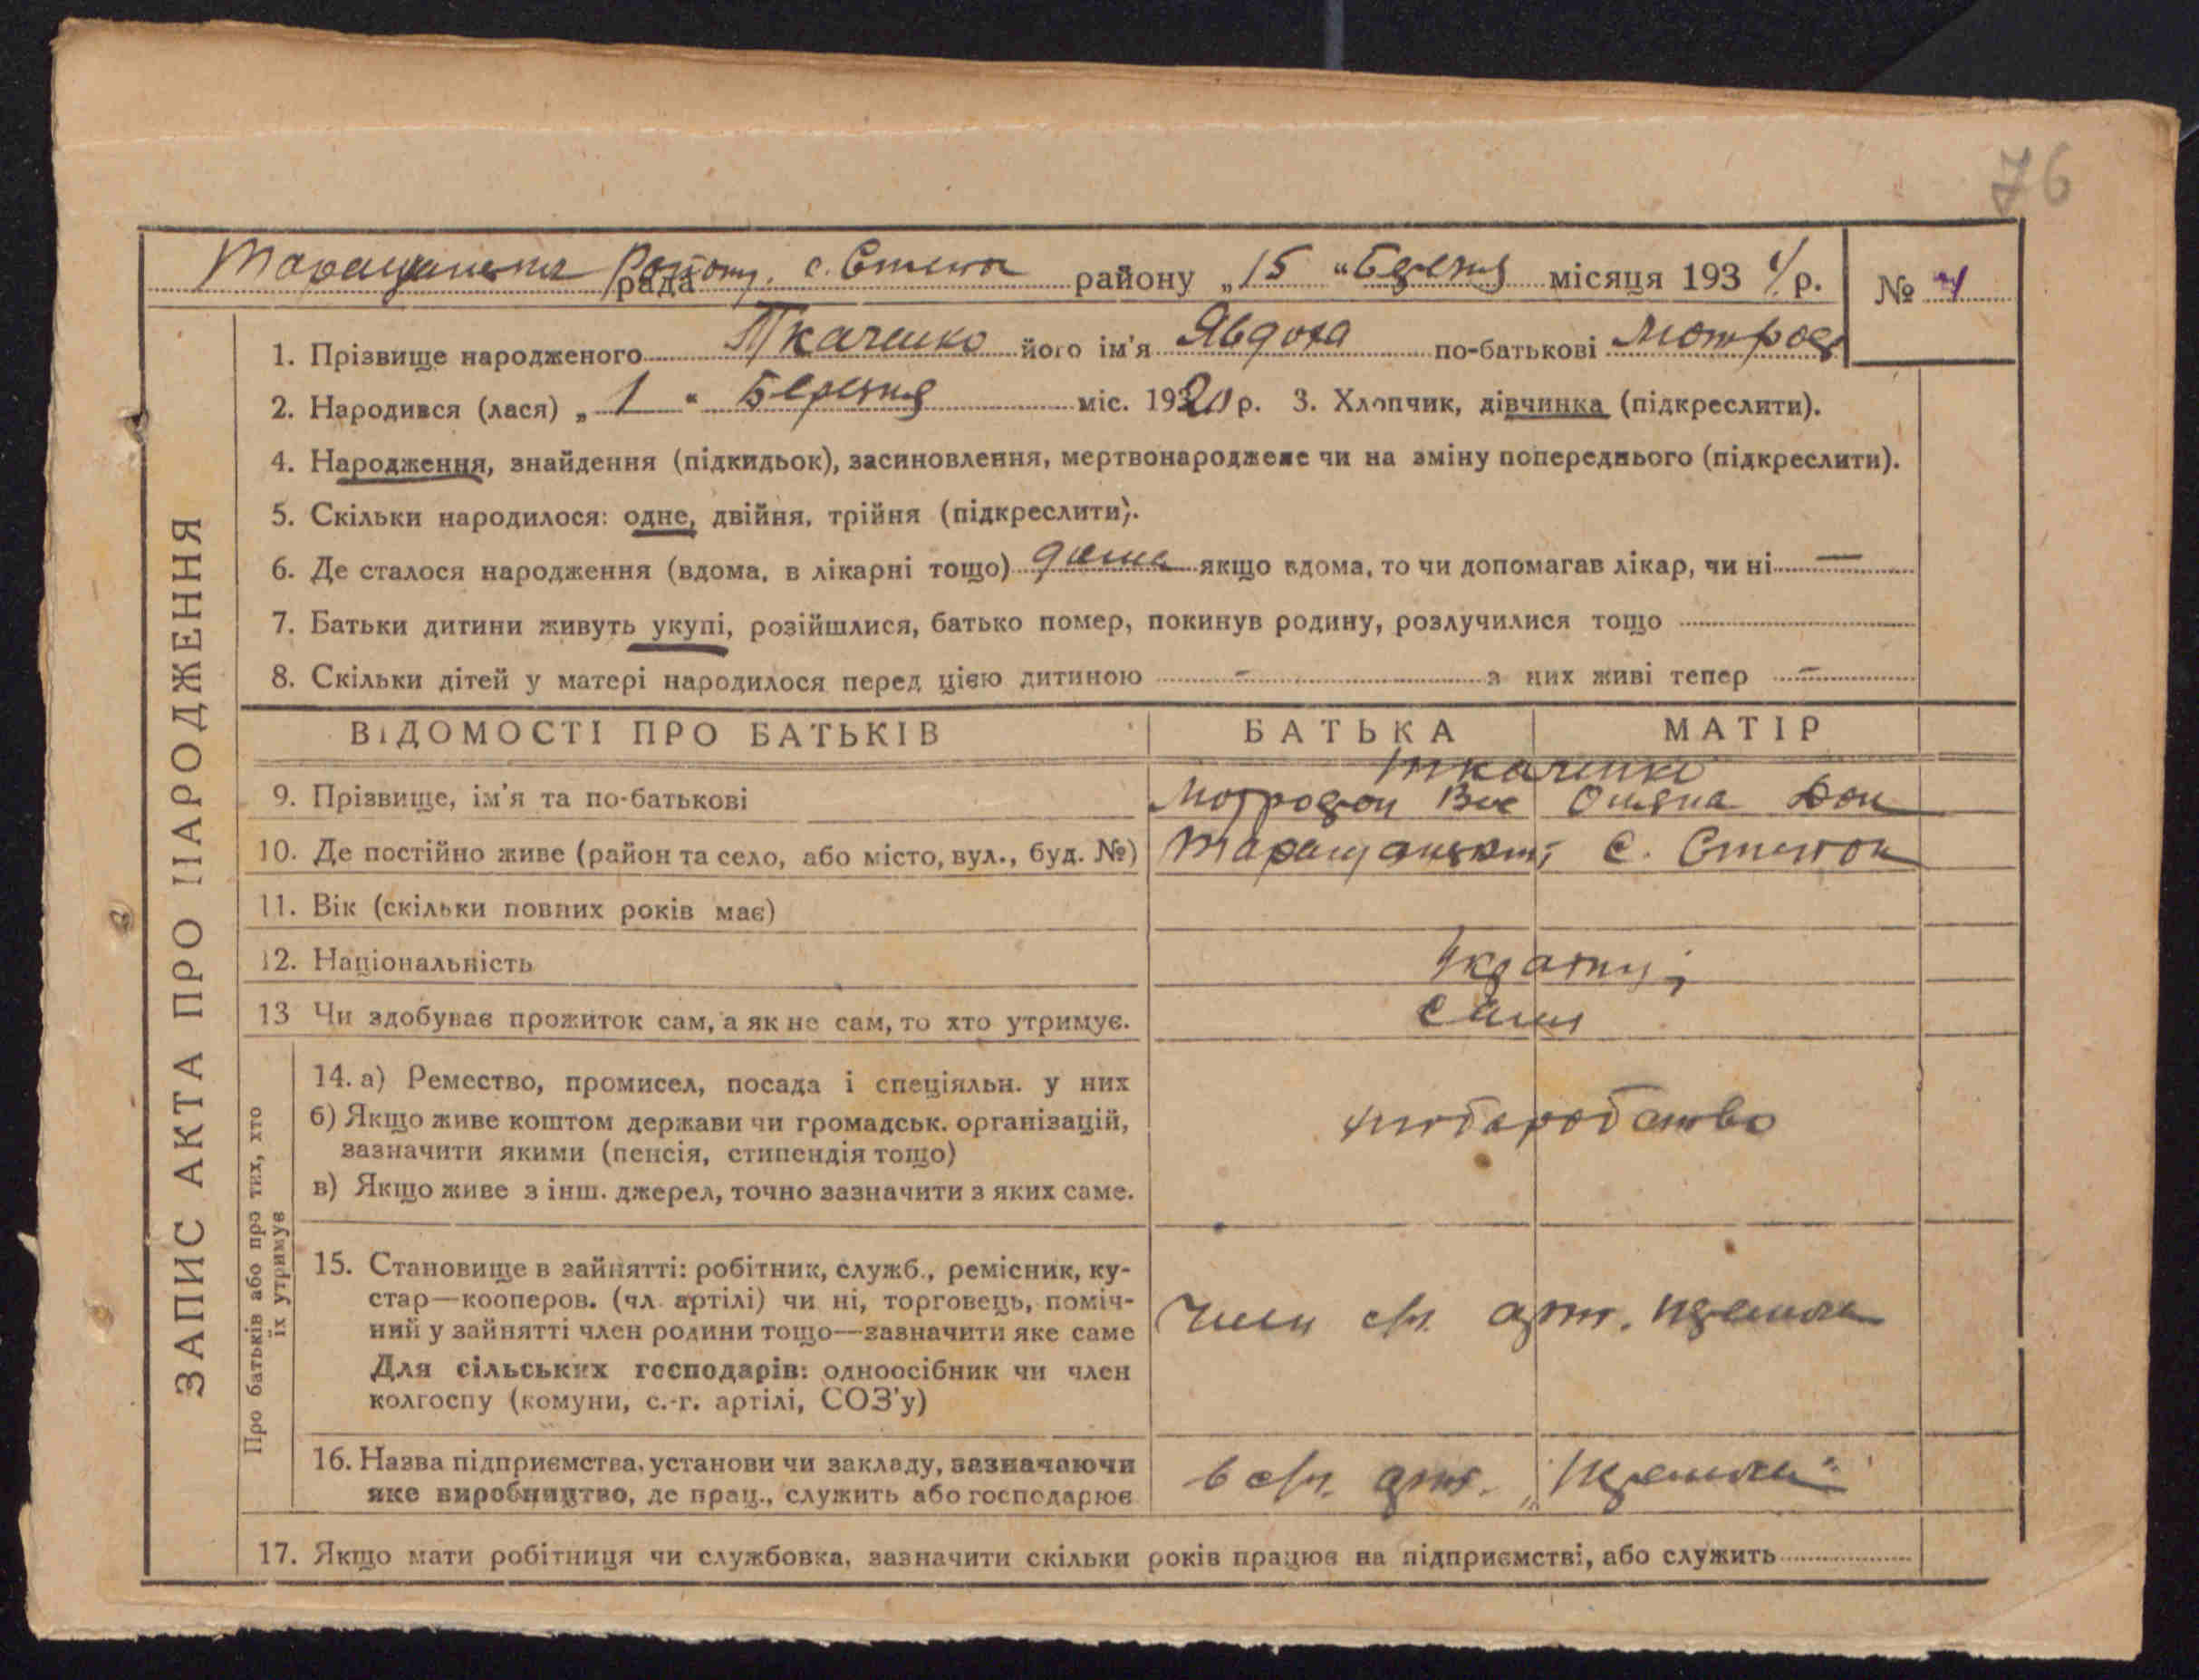 76
рада с. района району „15 “ Березня місяця 193 р. №
1. Прізвище народженого Ткаченко його ім'я Явдоха по-батькові Мотрод
2. Народився (лася) „ 1 “ Березня міс. 1920 р. 3. Хлопчик, дівчинка (підкреслити).
4. Народження, знайдення (підкидьок), засиновлення, мертвонароджене чи на зміну попереднього (підкреслити).
5. Скільки народилося: одне, двійня, трійня (підкреслити).
6. Де сталося народження (вдома, в лікарні тощо) дома якщо вдома, то чи допомагав лікар, чи ні —
7. Батьки дитини живуть укупі, розійшлися, батько помер, покинув родину, розлучилися тощо
8. Скільки дітей у матері народилося перед цією дитиною - з них живі тепер -
ЗАПИС АКТА ПРО НАРОДЖЕННЯ
ВІДОМОСТІ ПРО БАТЬКІВ БАТЬКА МАТІР
Ткаченко
9. Прізвище, ім'я та по-батькові
10. Де постійно живе (район та село, або місто, вул., буд. №) с.
11. Вік (скільки повних років має)
12. Національність
13 Чи здобуває прожиток сам, а як не сам, то хто утримує. сами
Про батьків або про тих, хто
їх утримує
14. а) Ремество, промисел, посада і спеціяльн. у них
б) Якщо живе коштом держави чи громадськ. організацій,
зазначити якими (пенсія, стипендія тощо) хліборобство
в) Якщо живе з інш. джерел, точно зазначити з яких саме.
15. Становище в зайнятті: робітник, служб., ремісник, ку-
стар—кооперов. (чл. артілі) чи ні, торговець, поміч-
ний у зайнятті член родини тощо—зазначити яке саме член с/г. арт.
Для сільських господарів: одноосібник чи член
колгоспу (комуни, с.-г. артілі, СОЗ'у)
16. Назва підприємства, установи чи закладу, зазначаючи
яке виробництво, де прац., служить або господарює в с/г. арт.
17. Якщо мати робітниця чи службовка, зазначити скільки років працює на підприємстві, або служить